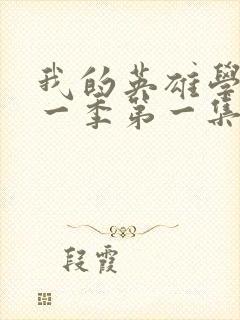 我的英雄學
一季第一集
段霞